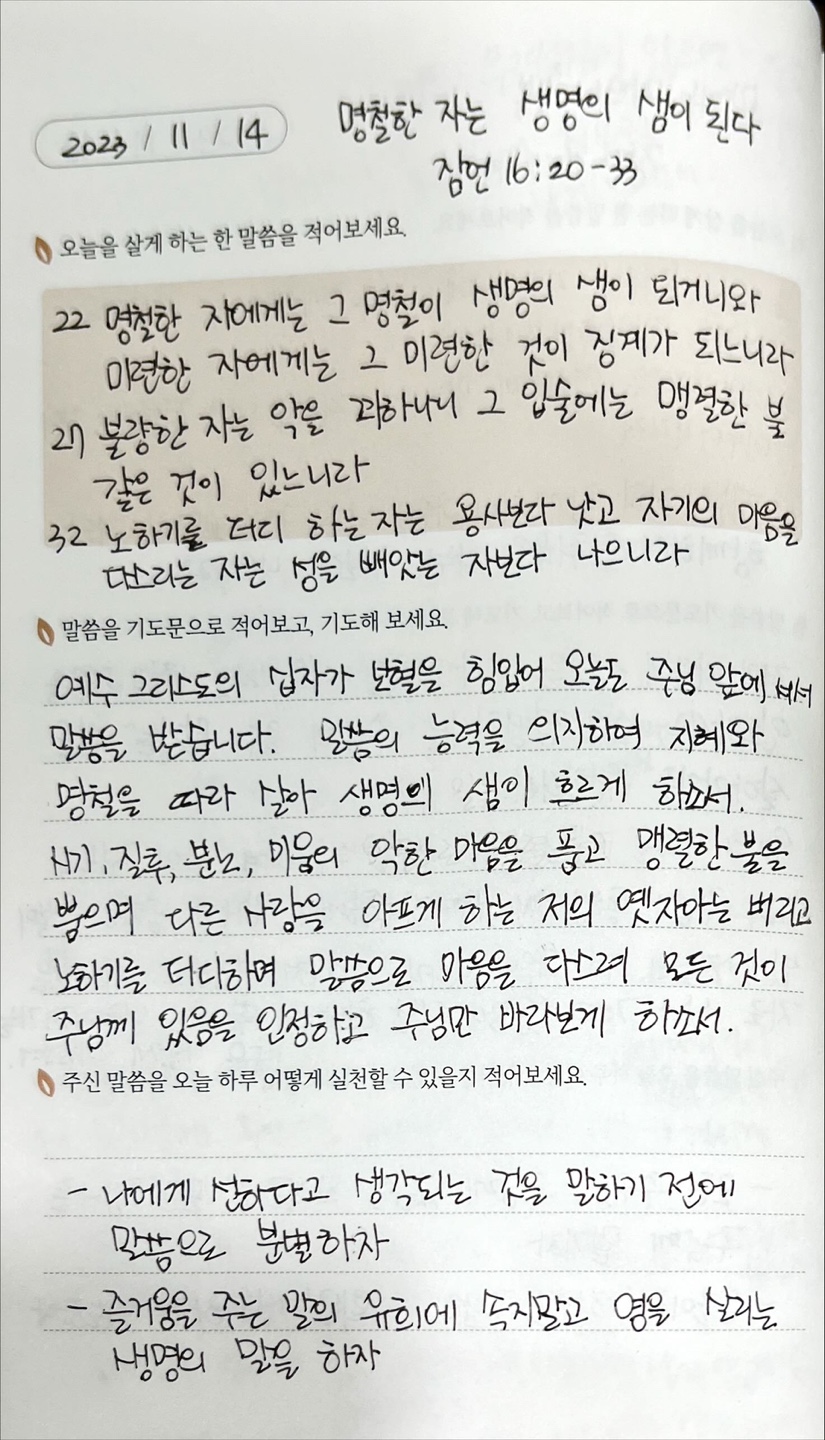 2023 / 11 / 14
명철한 자는 생명의 샘이 된다
잠언 16:20-33
오늘을 살게 하는 한 말씀을 적어보세요.
22 명철한 자에게는 그 명철이 생명의 샘이 되거니와
미련한 자에게는 그 미련한 것이 징계가 되느니라
27 불량한 자는 악을 꾀하나니 그 입술에는 맹렬한 불
같은 것이 있느니라
32 노하기를 더디 하는 자는 용사보다 낫고 자기의 마음을
다스리는 자는 성을 빼앗는 자보다 나으니라
말씀을 기도문으로 적어보고, 기도해 보세요.
예수 그리스도의 십자가 보혈을 힘입어 오늘도 주님 앞에 서서
말씀을 받습니다. 말씀의 능력을 의지하여 지혜와
명철을 따라 살아 생명의 샘이 흐르게 하소서.
시기, 질투, 분노, 미움의 악한 마음을 품고 맹렬한 불을
뿜으며 다른 사람을 아프게 하는 저의 옛자아는 버리고
노하기를 더디하며 말씀으로 마음을 다스려 모든 것이
주님께 있음을 인정하고 주님만 바라보게 하소서.
주신 말씀을 오늘 하루 어떻게 실천할 수 있을지 적어보세요.
- 나에게 선하다고 생각되는 것을 말하기 전에
말씀으로 분별하자
- 즐거움을 주는 말의 유희에 속지말고 영을 살리는
생명의 말을 하자